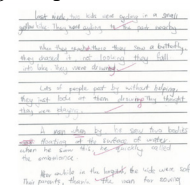 Last week two kids were cycling in a small
garden like. They were cycling to the park nearby.
When they arrived there they saw a butterfly,
they chased it not looking they fall
it's like they were drowning.
Lots of people past by without helping,
they just looked on them drowning They thought
they were playing.
A man when by he saw two bodies
floating at the surface of water
when he saw this he quickly called
the ambulance.
After while in the hospital, the kids were safe
Their parents, thanks the man for saving